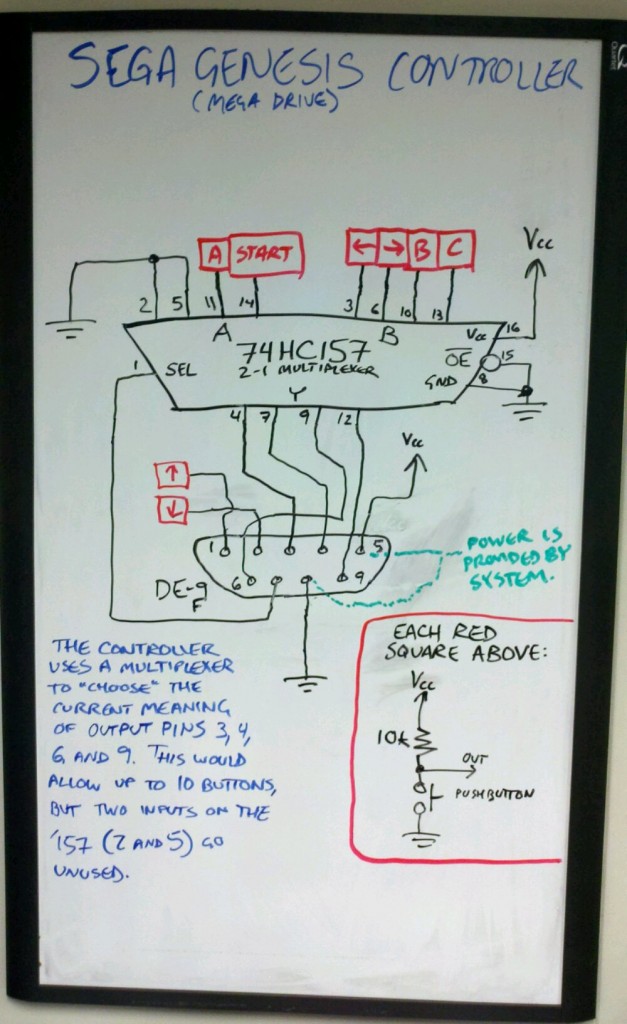 SEGA GENESIS CONTROLLER
(MEGA DRIVE)
A START ← → B C Vcc
2 5 11 14 3 6 10 13
A B Vcc 16
74HC157 OE 15
1 SEL 2-1 MULTIPLEXER GND 8
Y
4 7 9 12
Vcc
↑
↓
1 5
POWER IS
PROVIDED BY
SYSTEM.
DE-9 6 9
F
THE CONTROLLER
USES A MULTIPLEXER
TO "CHOOSE" THE
CURRENT MEANING
OF OUTPUT PINS 3, 4,
6 AND 9. THIS WOULD
ALLOW UP TO 10 BUTTONS,
BUT TWO INPUTS ON THE
'157 (2 AND 5) GO
UNUSED.
EACH RED
SQUARE ABOVE:
Vcc
10k
OUT
PUSHBUTTON
Quartet